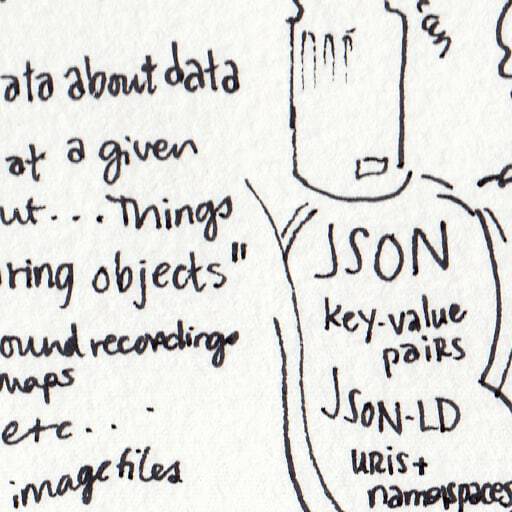 ata about data
at a given
ut... Things
ring objects"
ound recordings
maps
etc...
image files
can
JSON
key-value
pairs
JSON-LD
URIs +
namespaces